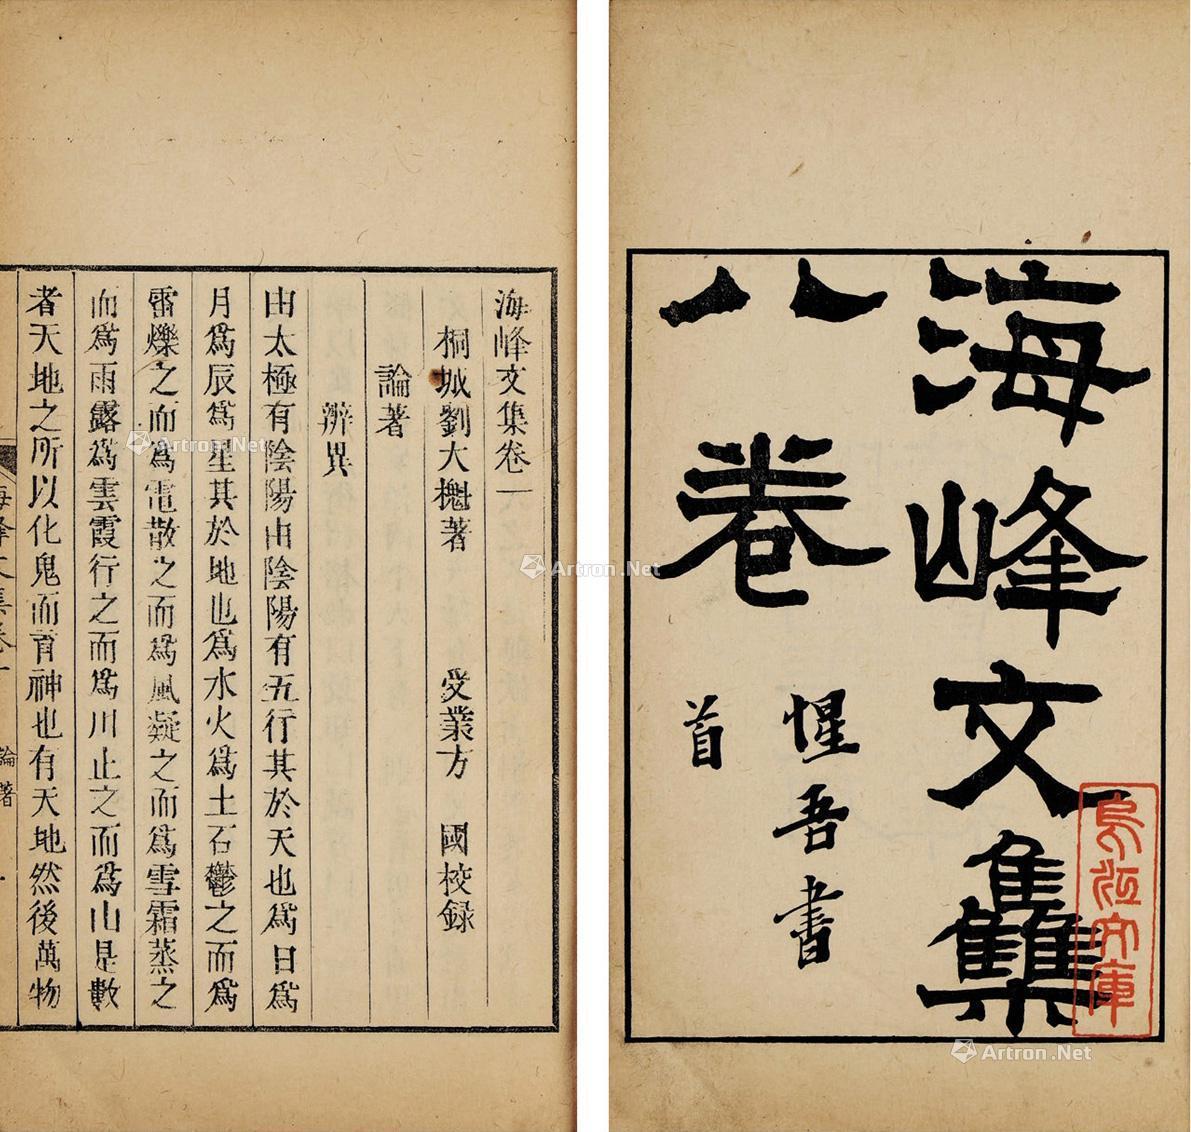 海峰文集
八卷
惺吾書
首
海峰文集卷一
桐城劉大櫆著 受業方 國校録
論著
辨異
由太極有陰陽由陰陽有五行其於天也爲日爲
月爲辰爲星其於地也爲水火爲土石鬱之而爲
雷爍之而爲電散之而爲風凝之而爲雪霜蒸之
而爲雨露爲雲霞行之而爲川止之而爲山是數
者天地之所以化鬼而育神也有天地然後萬物
海峰文集卷一 論著 一
文庫
Artron.Net
Artron.Net
Artron.Net
Artron.Net